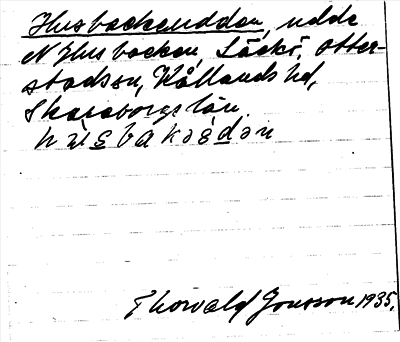 Husbackeudden, udde
N Husbacken, Läckö, Otter-
stadsn, Kållands hd,
Skaraborgs län.
Thorvald Jonsson 1935.